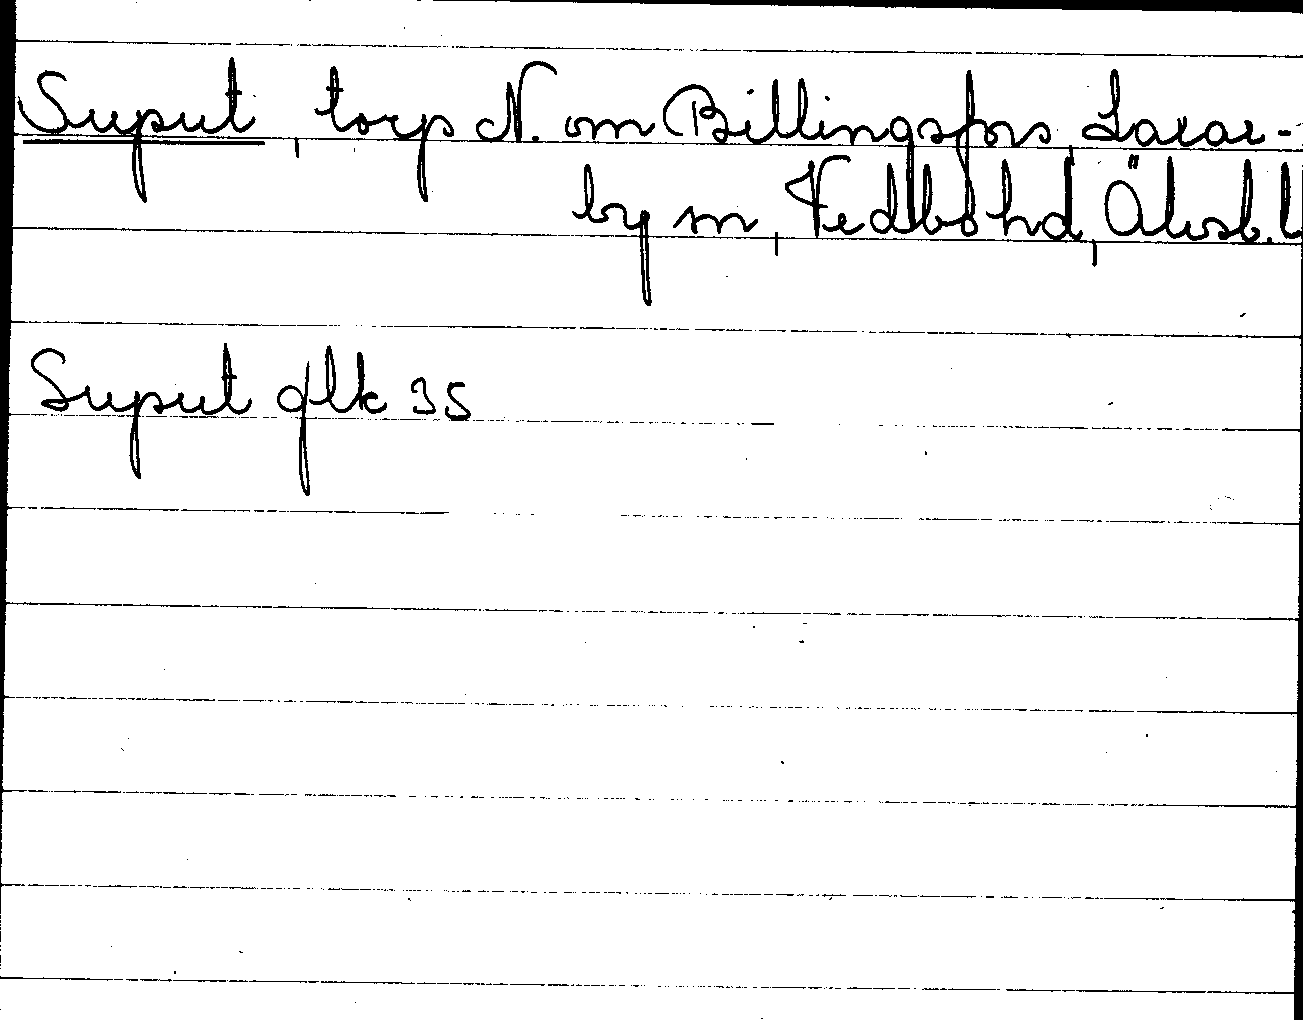 Suput, torp N. om Billingsfors, Laxar-
by sn, Vedbo hd, Älvsb. l
Suput glk 35